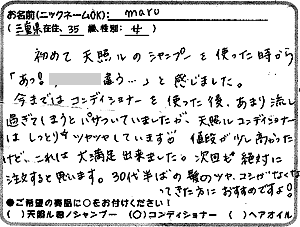 お名前(ニックネームOK): maro
(三重県在住、35 歳、性別: 女)
初めて 天照ルのシャンプーを使った時から
「あっ! 違う…」と感じました。
今まではコンディショナーを使った後、あまり流し
過ぎてしまうとパサついていましたが、天照ルコンディショナー
はしっとりツヤツヤしています 値段が少し高かった
けど、これは大満足出来ました。次回も絶対に
注文すると思います。30代半ばの髪のツヤ、コシがなくな
ってきた方におすすめですよ!
●ご希望の商品に○をお付けください!
( )天照ル恵のシャンプー (○)コンディショナー ( )ヘアオイル